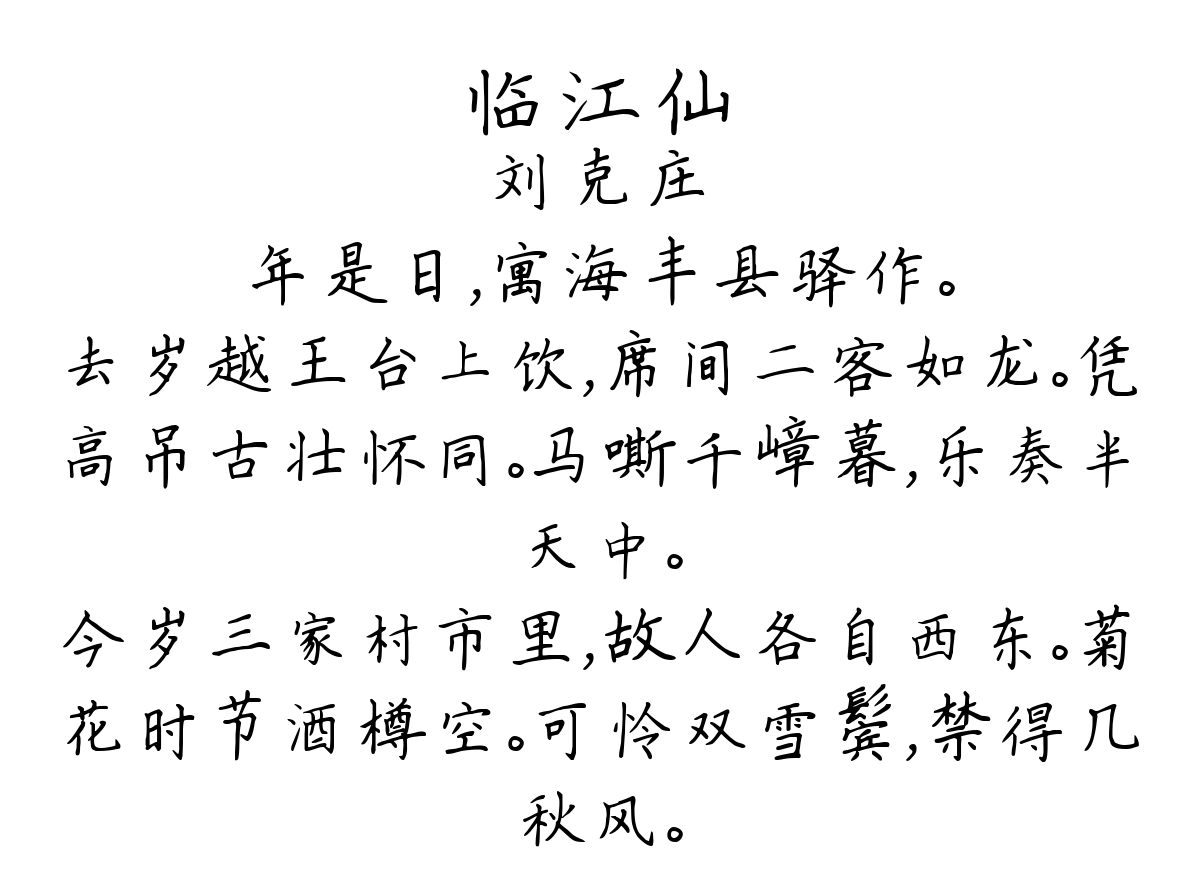 临江仙
刘克庄
年是日,寓海丰县驿作。
去岁越王台上饮,席间二客如龙。凭
高吊古壮怀同。马嘶千嶂暮,乐奏半
天中。
今岁三家村市里,故人各自西东。菊
花时节酒樽空。可怜双雪鬓,禁得几
秋风。